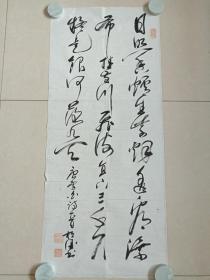 日照香炉生紫烟遥看瀑
布挂前川飞流直下三千尺
疑是银河落九天
唐李白诗一首